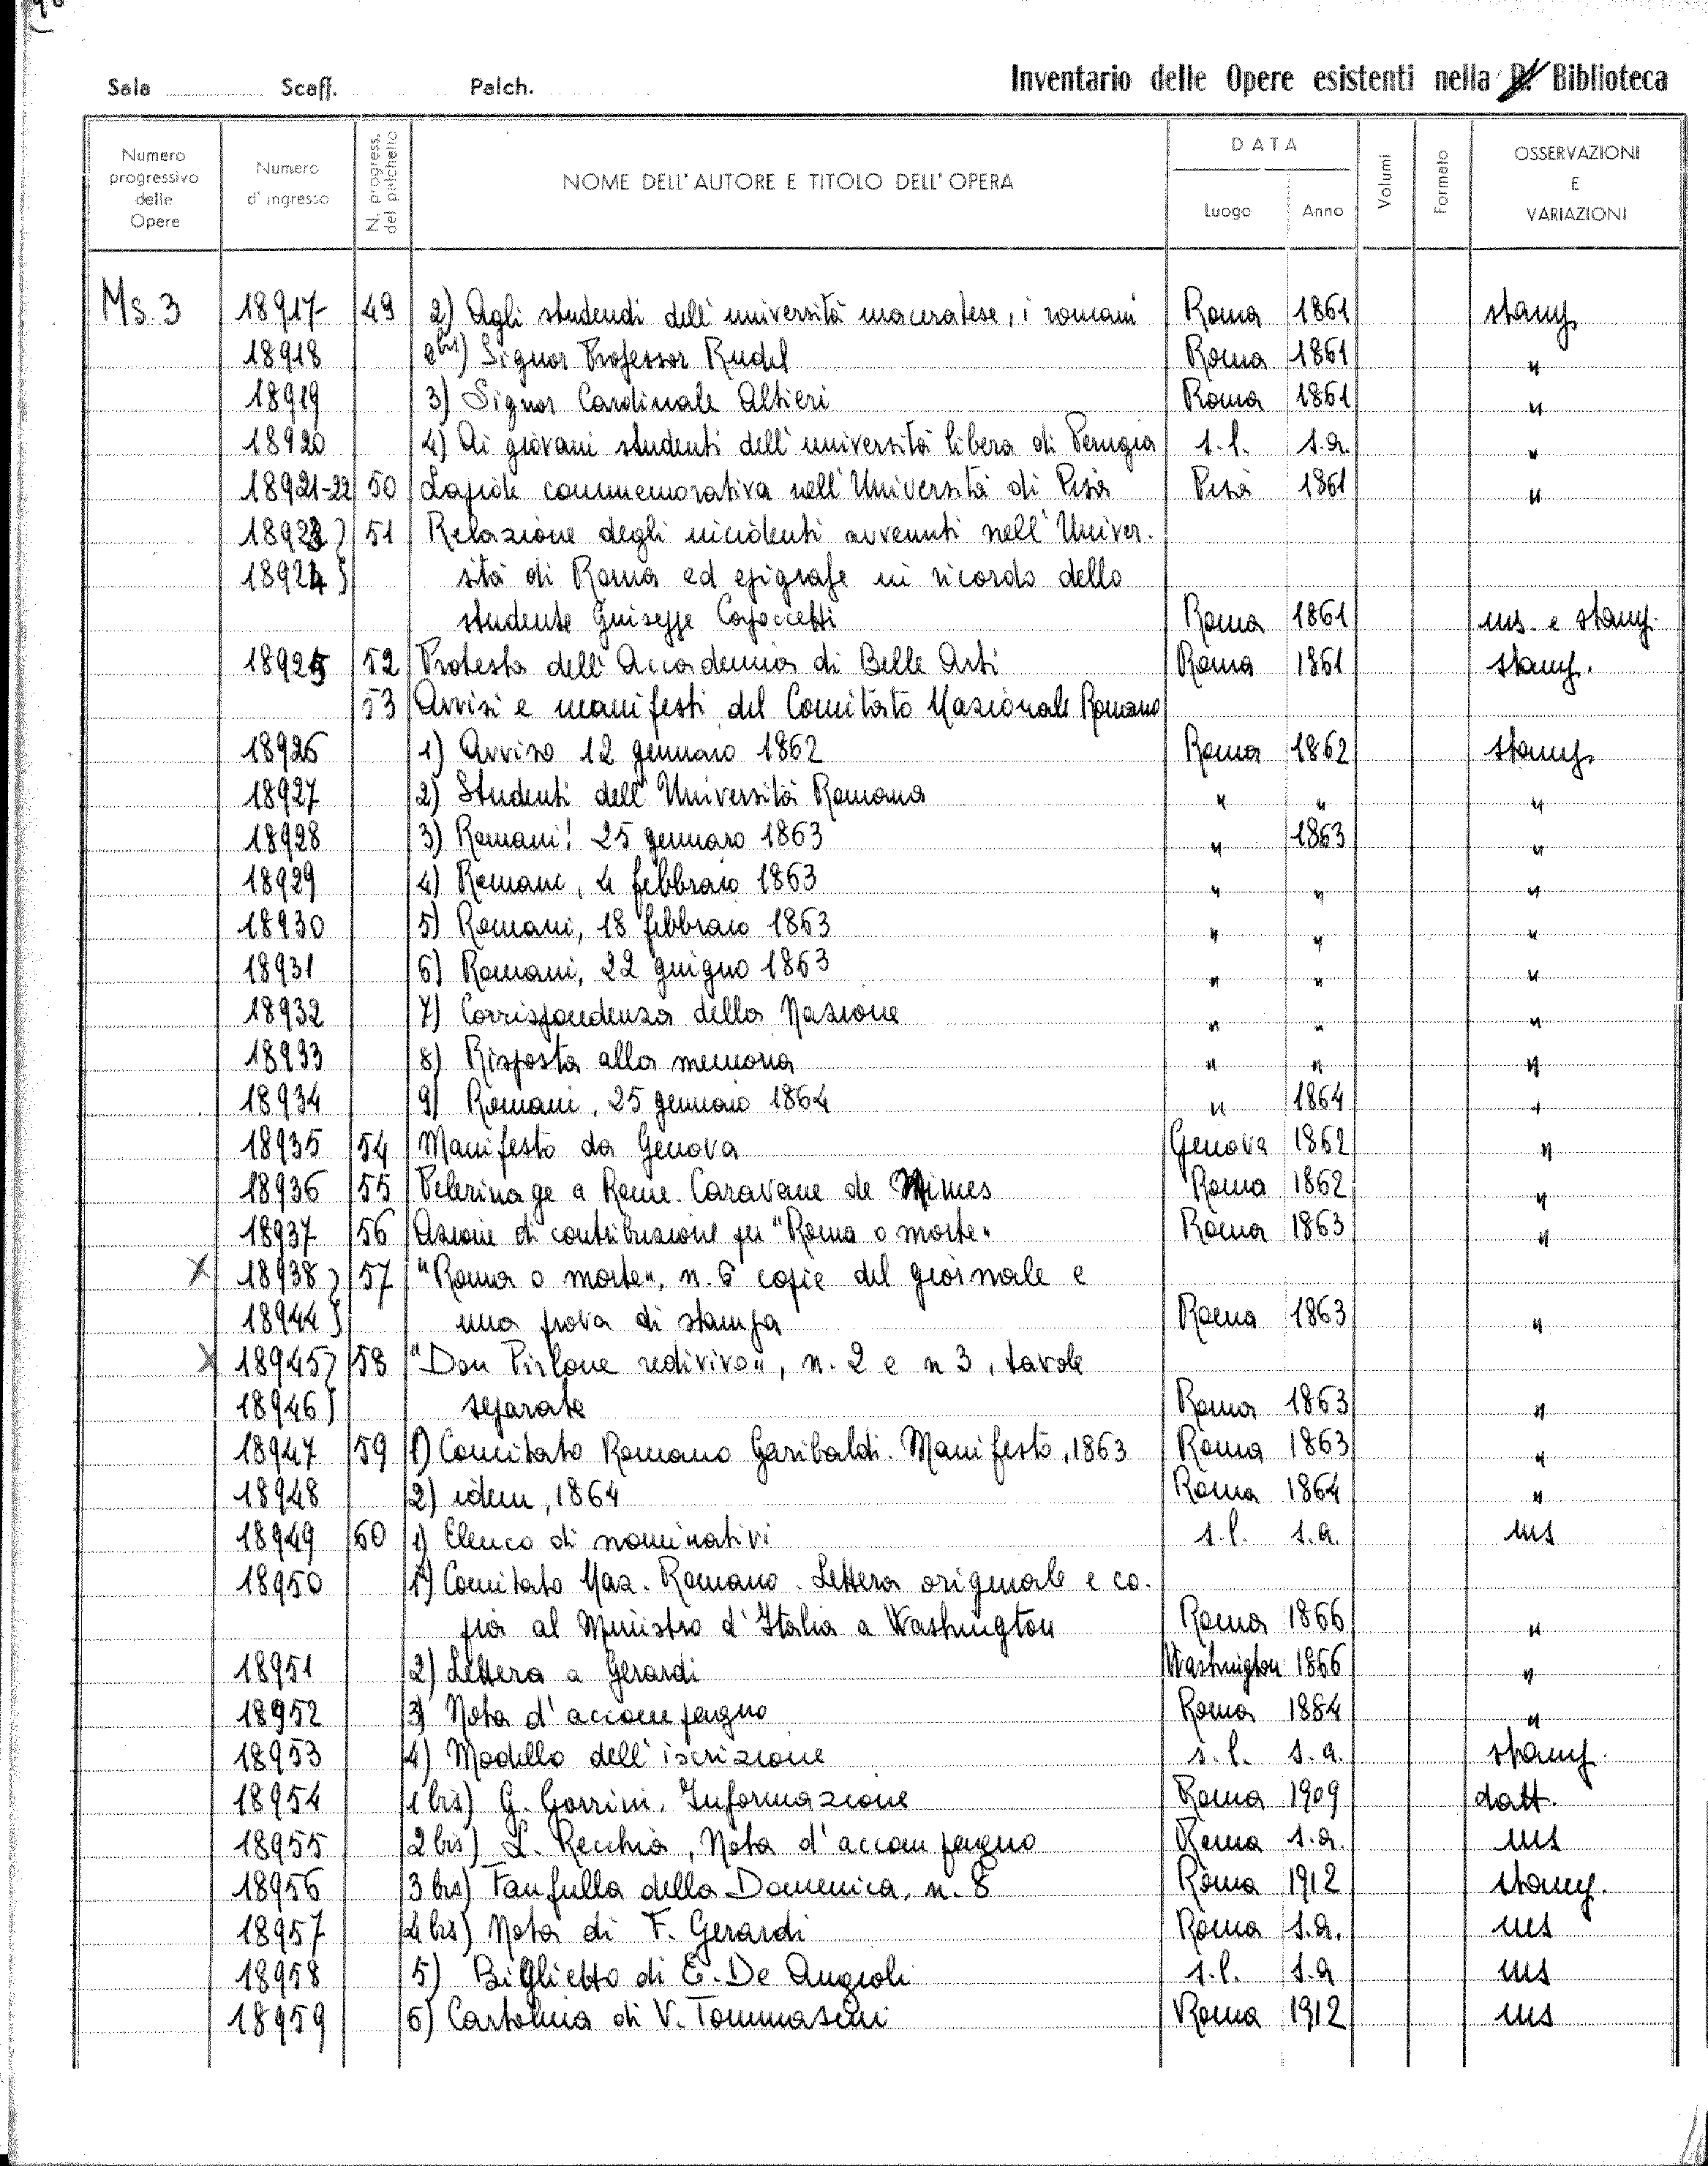 Sala Scaff. Palch. Inventario delle Opere esistenti nella R. Biblioteca
Numero progressivo delle Opere | Numero d'ingresso | N. progress. del palchetto | NOME DELL'AUTORE E TITOLO DELL'OPERA | DATA Luogo Anno | Volumi | Formato | OSSERVAZIONI E VARIAZIONI
Ms. 3 18917- 49 2) Agli studendi dell'università maceratese, i romani Roma 1861 stamp.
18918 2bis) Signor Professor Rudel Roma 1861 "
18919 3) Signor Cardinale Altieri Roma 1861 "
18920 4) Ai giovani studenti dell'università libera di Perugia s.l. s.a. "
18921-22 50 Lapide commemorativa nell'Università di Pisa Pisa 1861 "
18923) 51 Relazione degli incidenti avvenuti nell'Univer-
18924) sità di Roma ed epigrafe in ricordo dello
studente Giuseppe Roma 1861 ms. e stamp.
18925 52 Protesta dell'Accademia di Belle Arti Roma 1861 stamp.
53 Avvisi e manifesti del Comitato Nazionale Romano
18926 1) Avviso 12 gennaio 1862 Roma 1862 stamp.
18927 2) Studenti dell'Università Romana " " "
18928 3) Romani! 25 gennaio 1863 " 1863 "
18929 4) Romani, 4 febbraio 1863 " " "
18930 5) Romani, 18 febbraio 1863 " " "
18931 6) Romani, 22 giugno 1863 " " "
18932 7) Corrispondenza della Nazione " " "
18933 8) Risposta alla memoria " " "
18934 9) Romani, 25 gennaio 1864 " 1864 "
18935 54 Manifesto da Genova Genova 1862 "
18936 55 Pelerinage a Rome. Caravane de Nimes Roma 1862 "
18937 56 Azione di contribuzione per "Roma o morte" Roma 1863 "
X 18938) 57 "Roma o morte", n. 6 copie del giornale e
18944) una prova di stampa Roma 1863 "
X 18945) 58 "Don Pirlone redivivo", n. 2 e n 3, tavole
18946) separate Roma 1863 "
18947 59 1) Comitato Romano Garibaldi. Manifesto, 1863 Roma 1863 "
18948 2) idem, 1864 Roma 1864 "
18949 60 1) Elenco di nominativi s.l. s.a. ms
18950 1') Comitato Naz. Romano. Lettera originale e co-
pia al Ministro d'Italia a Washington Roma 1866 "
18951 2) Lettera a Gerardi Washington 1866 "
18952 3) Nota d'accompagno Roma 1884 "
18953 4) Modello dell'iscrizione s.l. s.a. stamp.
18954 1 bis) G. Gorrini, Informazione Roma 1909 datt.
18955 2 bis) L. Recchia, Nota d'accompagno Roma s.a. ms
18956 3 bis) Fanfulla della Domenica, n. 8 Roma 1912 stamp.
18957 4 bis) Nota di F. Gerardi Roma s.a. ms
18958 5) Biglietto di E. De Angioli s.l. s.a ms
18959 6) Cartolina di V. Tommasini Roma 1912 ms